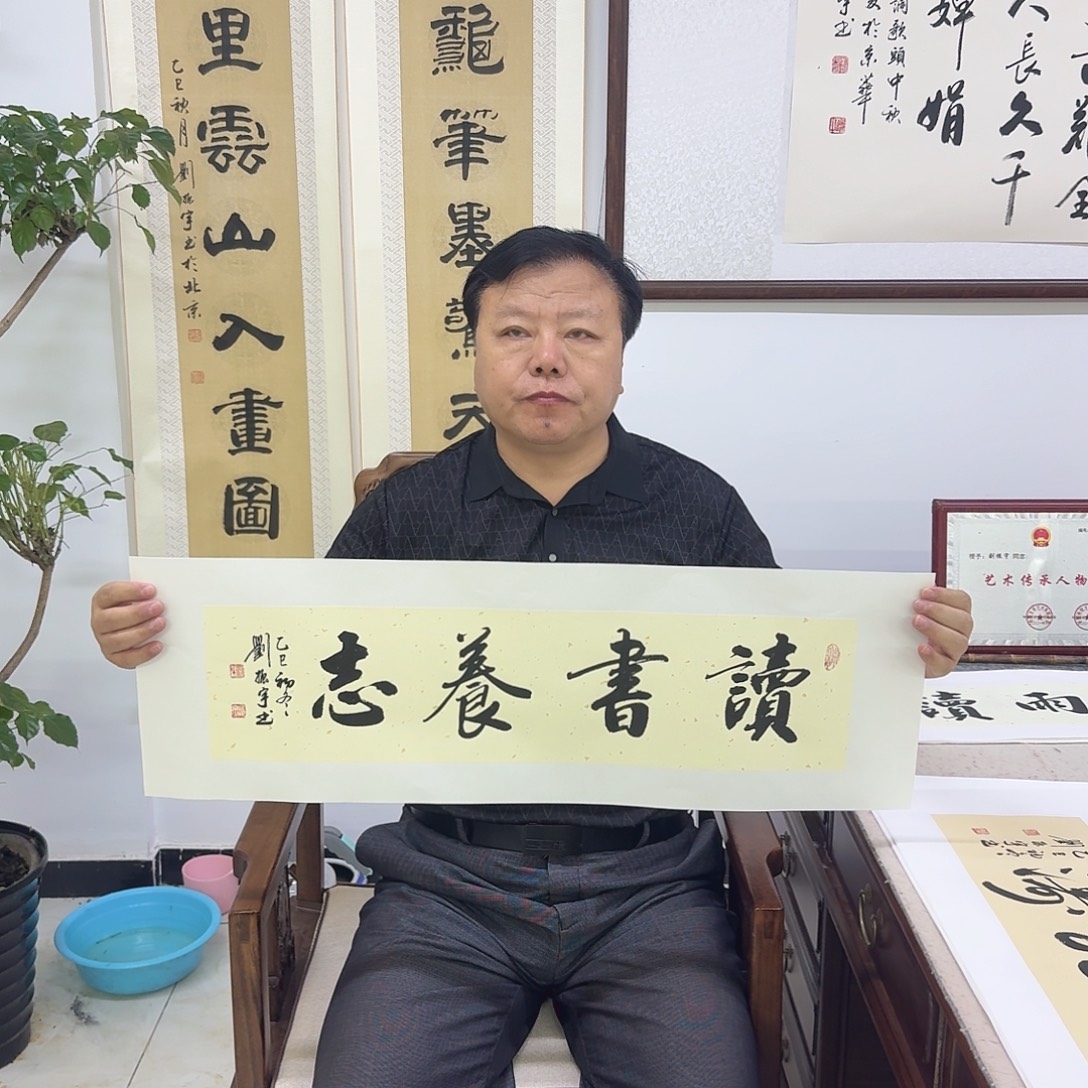 人長久千
嬋娟
調歌頭中秋
於京華
宇书
筆墨驚天
里雲山入畫圖
乙巳秋月 劉振宇书於北京
讀書養志
乙巳初冬
劉振宇书
授予：劉振宇 同志
艺术传承人物
雨讀